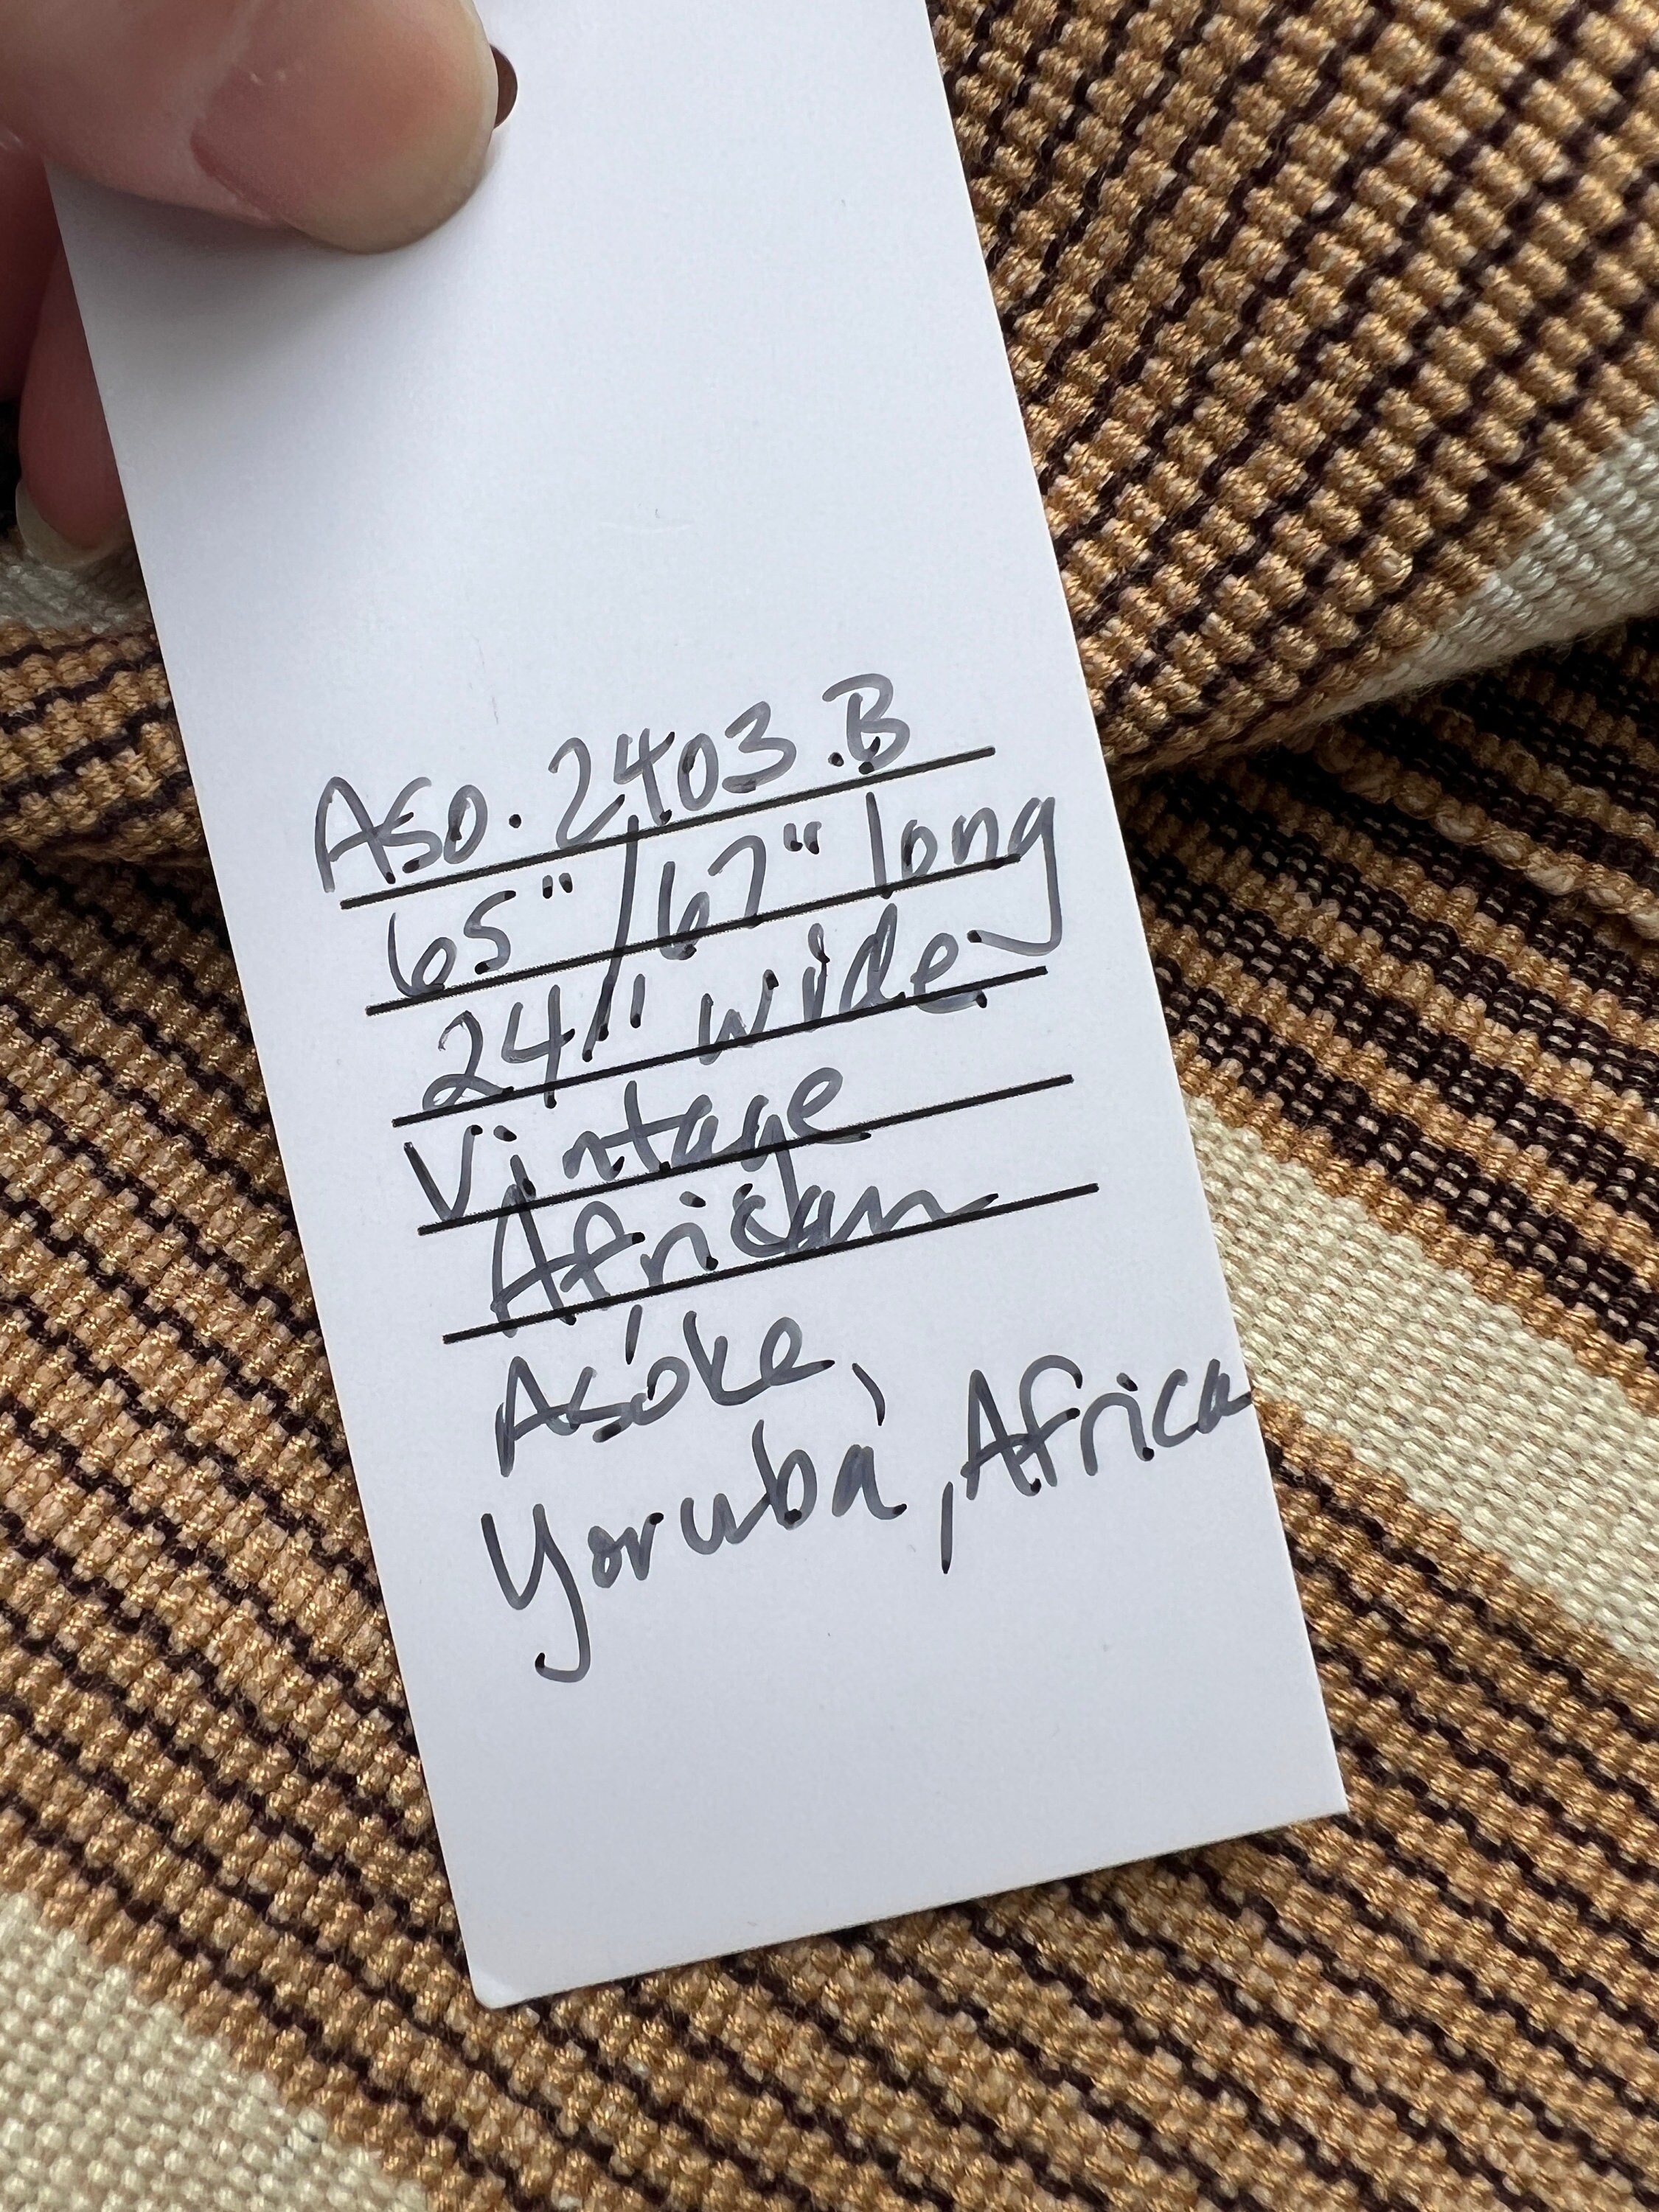 Aso. 2403.B
65"/67" long
24" wide
Vintage
African
Asóke,
Yorubà, Africa